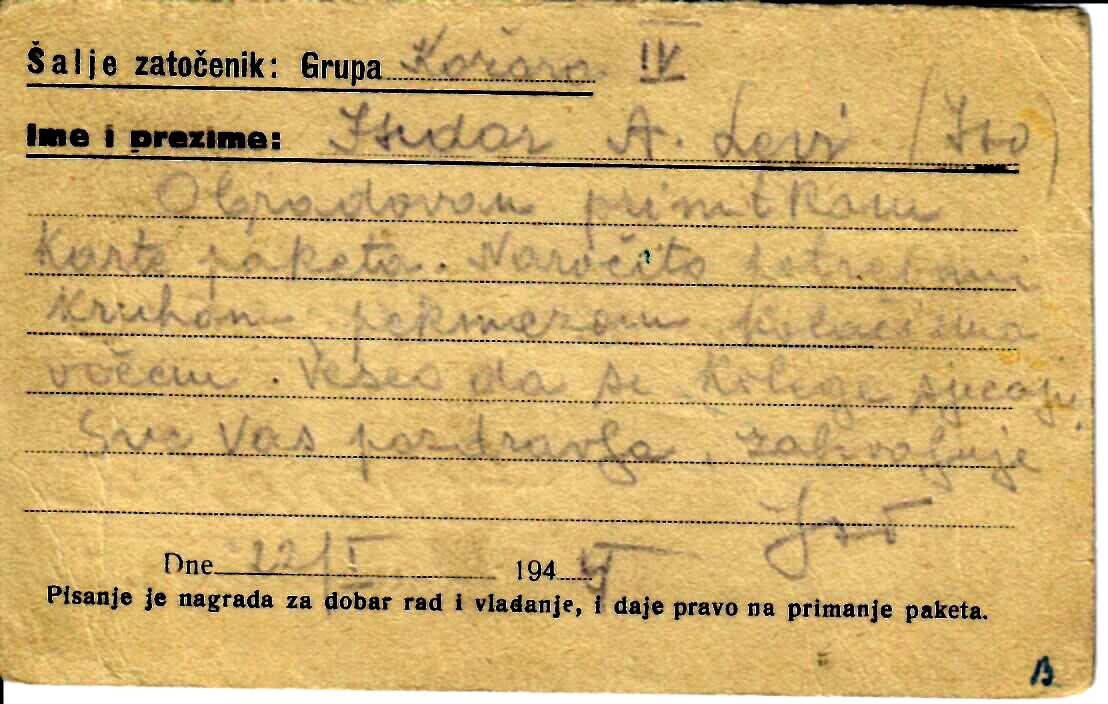 Šalje zatočenik: Grupa Kožara IV
Ime i prezime: Isidor A. Levi /Iso)
Obradovan primitkom
Karte paketa. Naročito
Kruhom pekmezom
voćem. Veseo da se Kolege sjećaju.
Sve Vas pozdravlja, zahvaljuje
Iso
Dne 22/I 194
Pisanje je nagrada za dobar rad i vladanje, i daje pravo na primanje paketa.
B